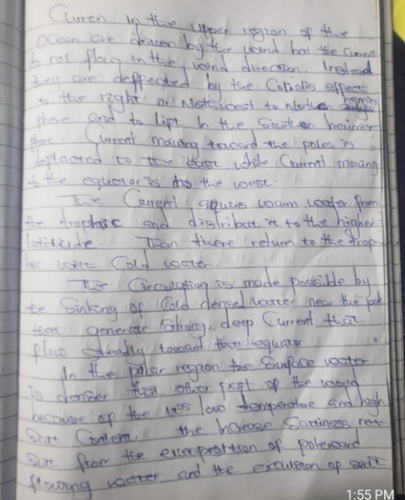 Curren in the upper region of the
Ocean are driven by the wind but the Current
do not flow in the wind direction. Instead
they are deflected by the Coriolis effect
to the right or Northwest to Northern hemis
phere and to lift in the Southern hemis
phere. Current moving toward the poles is
deflected to the east while Current moving
to the equator is to the west.
The Current aquires warm water from
the and distribut it to the higher
latitude. Then there return to the trop
with Cold water.
The Circulating is made possible by
the Sinking of Cold dense water near the pol
that generate Strong deep Current that
flow steadly toward the equator
In the polar region the Surface water
is denser than other part of the world
because of the low temperature and high
Content. the Increase Saltiness
from the of poleward
flowing water and the exclusion of salt
1:55 PM